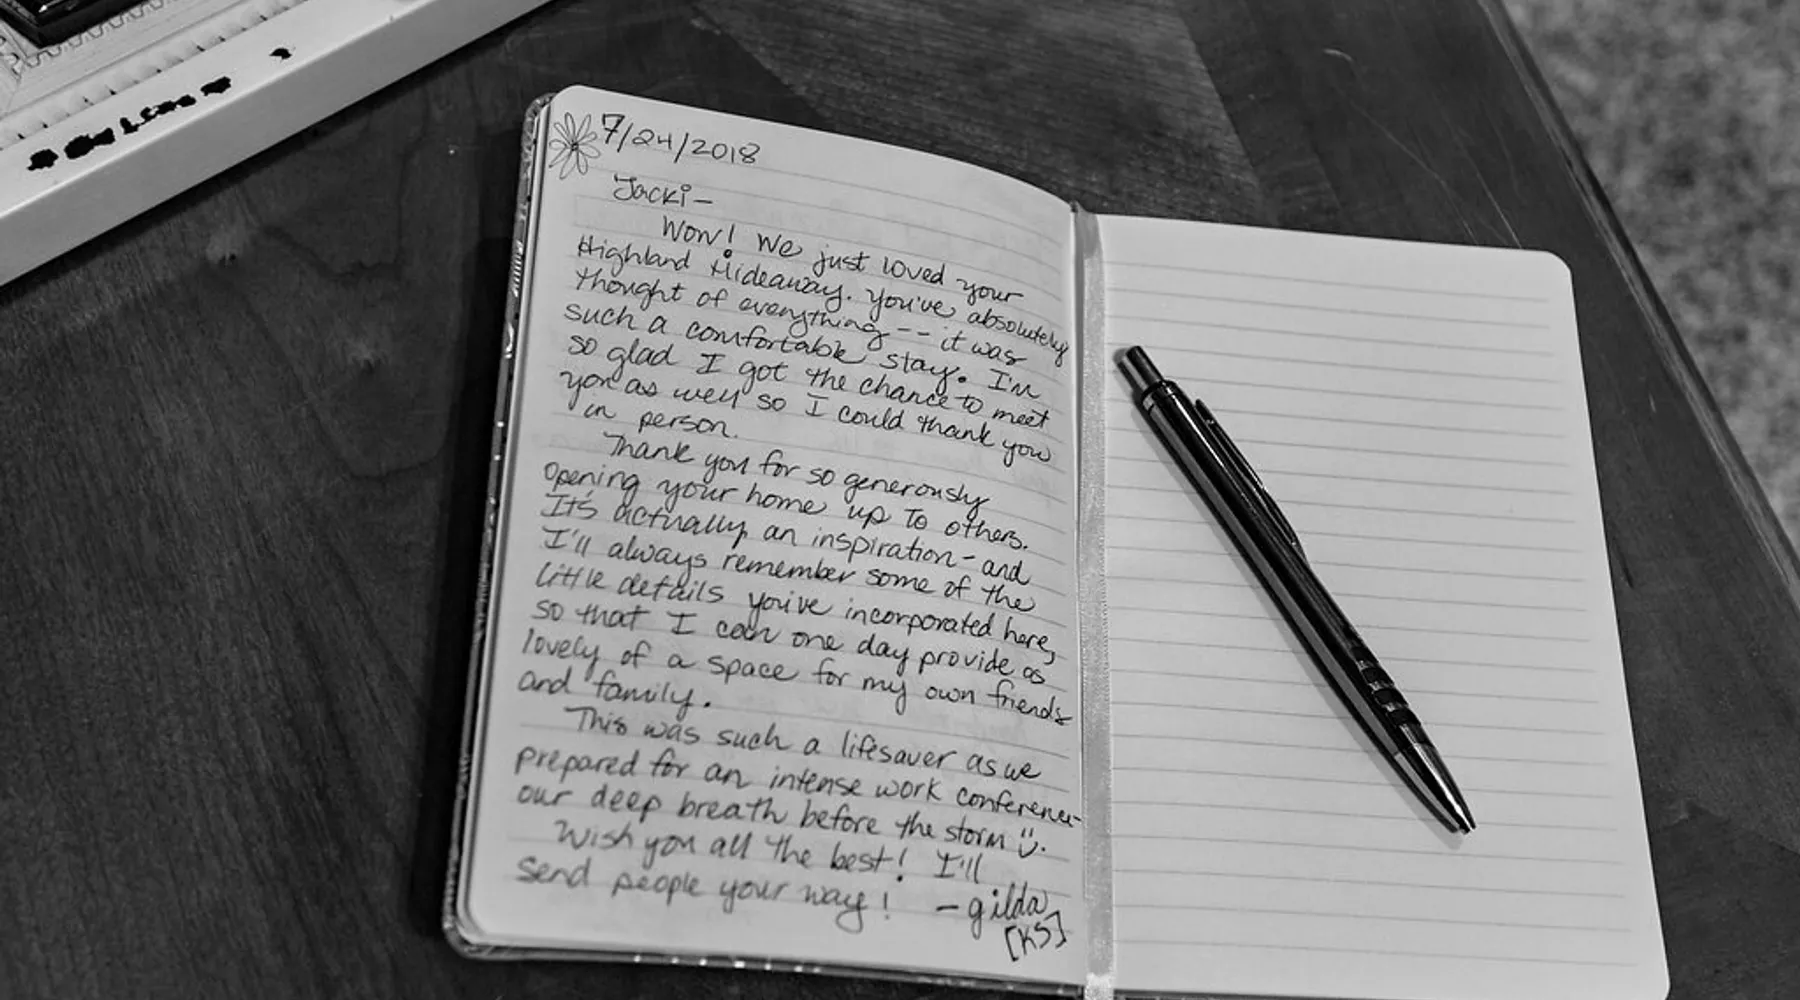 7/24/2018
Jacki-
Wow! We just loved your
Highland Hideaway. You've absolutely
thought of everything -- it was
such a comfortable stay. I'm
so glad I got the chance to meet
you as well so I could thank you
in person.
Thank you for so generously
opening your home up to others.
It's actually an inspiration - and
I'll always remember some of the
little details you've incorporated here,
so that I can one day provide as
lovely of a space for my own friends
and family.
This was such a lifesaver as we
prepared for an intense work conference-
our deep breath before the storm :).
Wish you all the best! I'll
send people your way! - gilda
[KS]